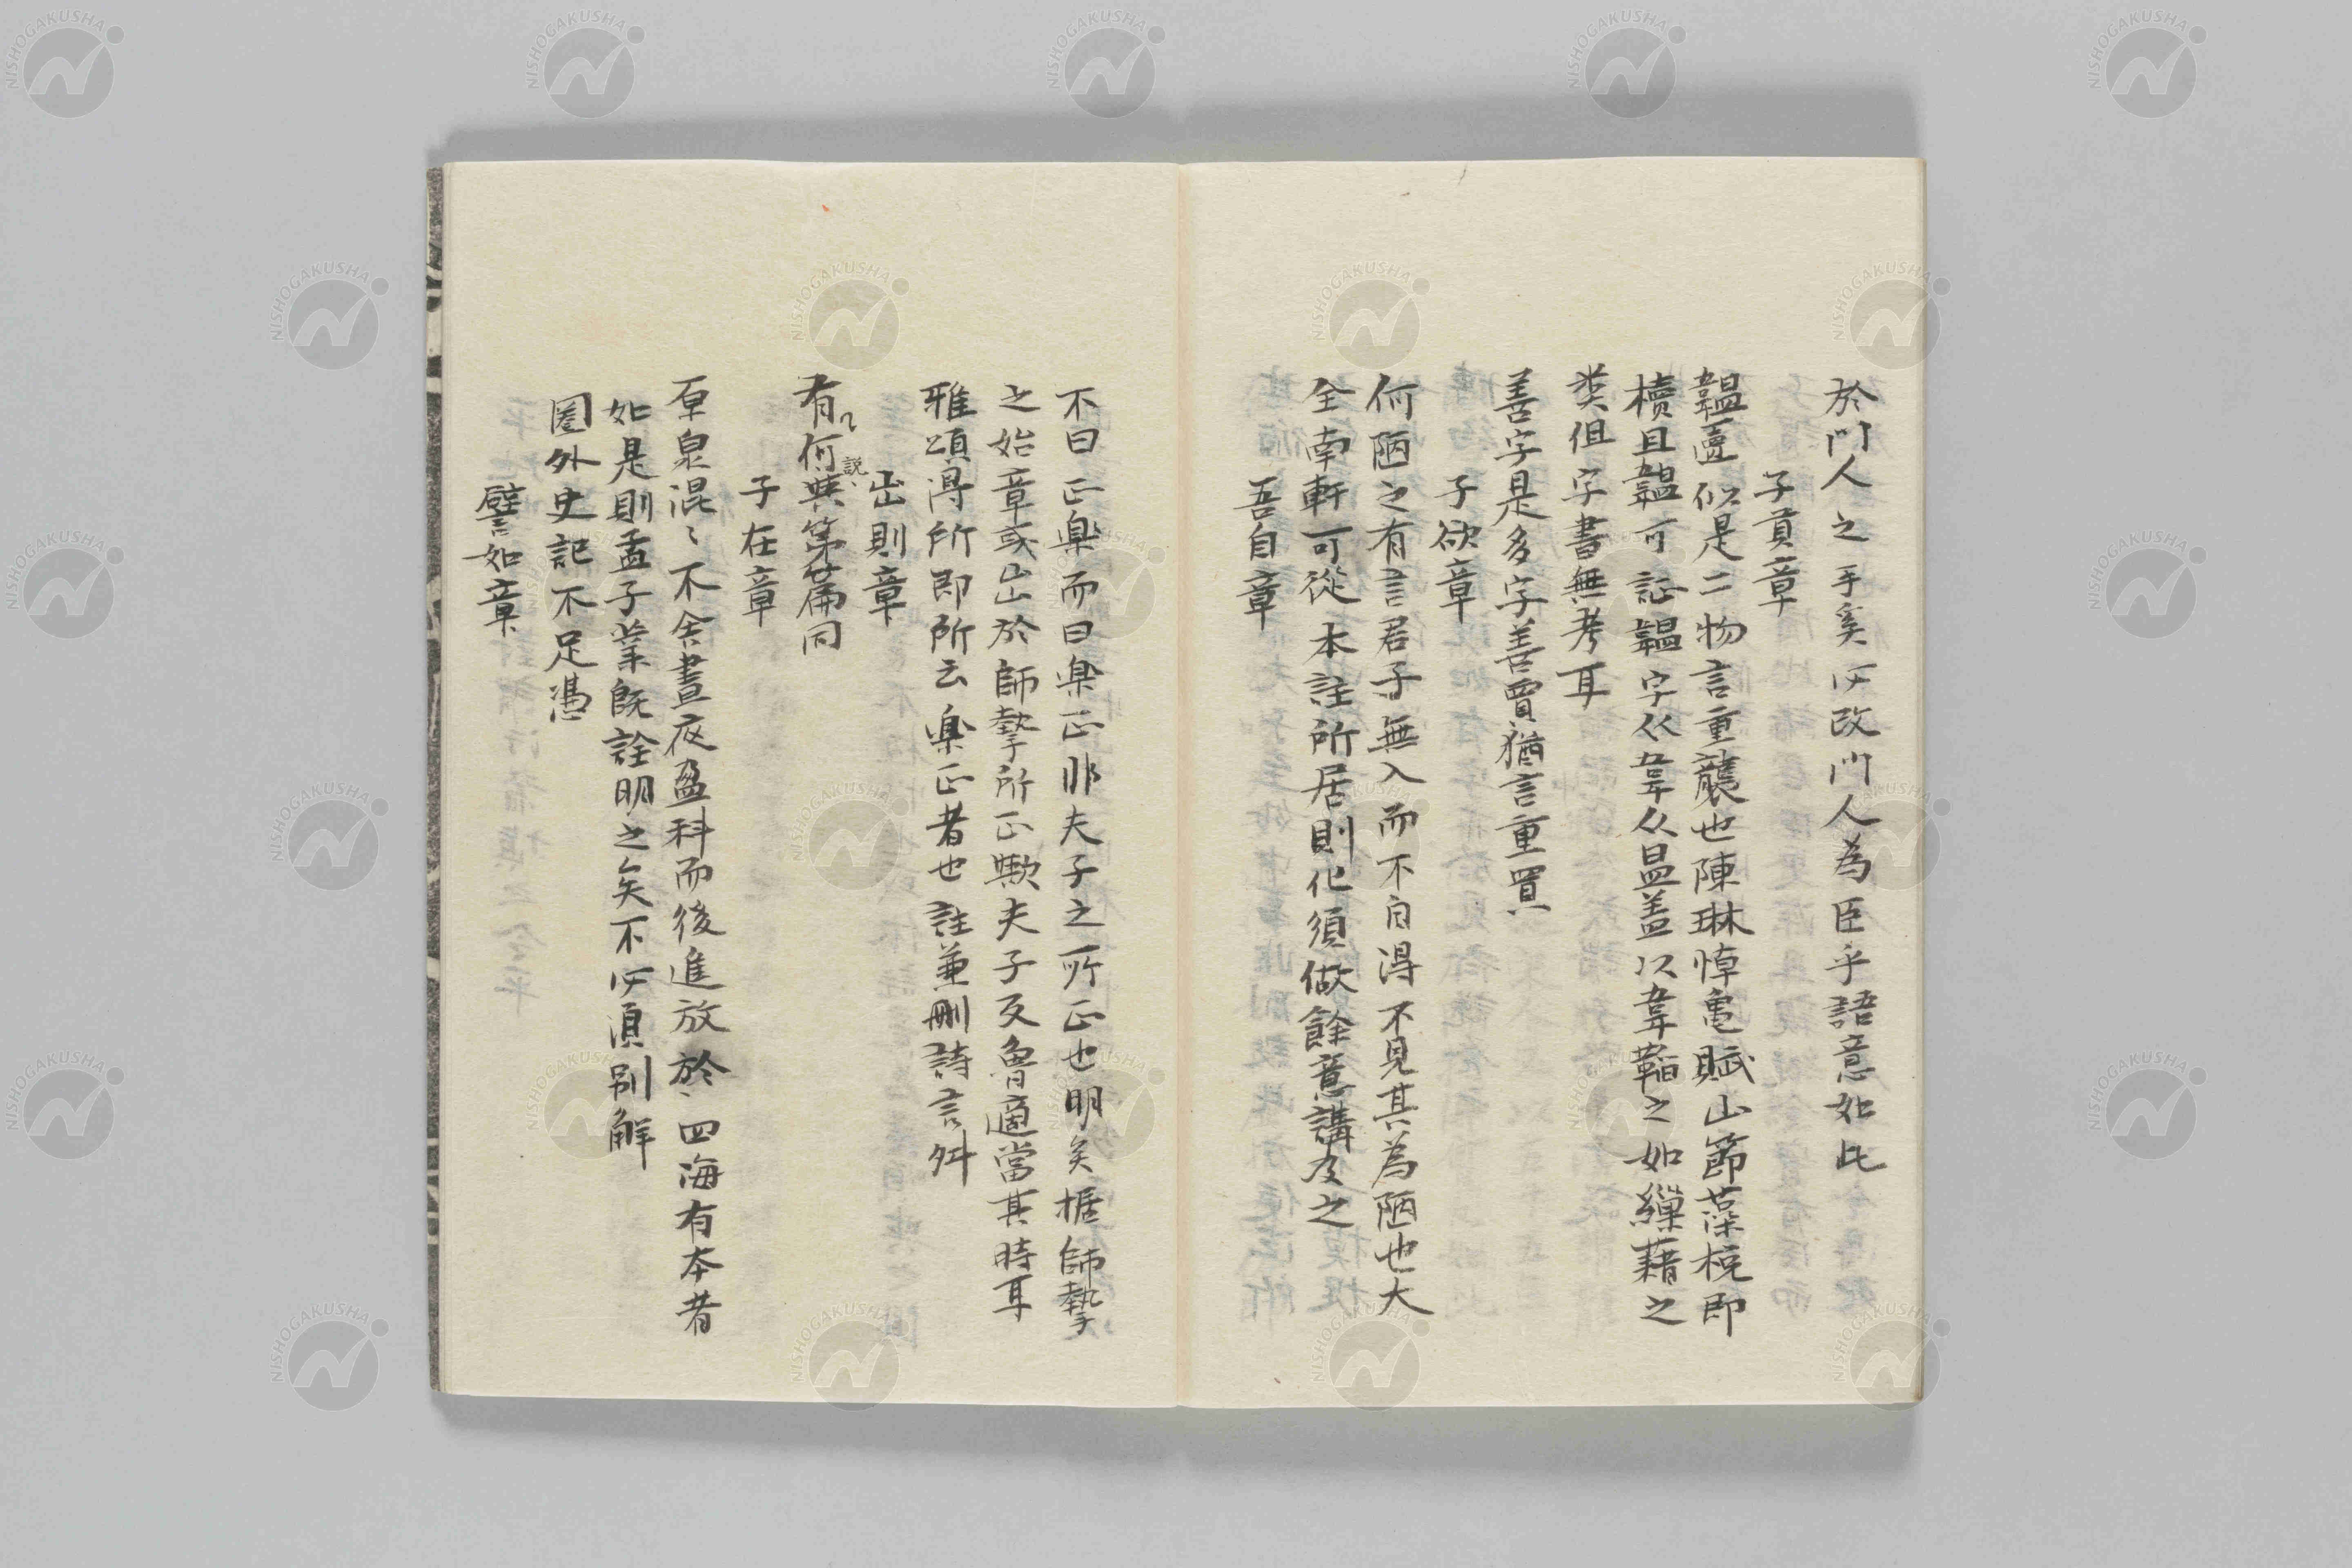 於門人之手奚必改門人為臣乎語意如此
子貢章
韞匵似是二物言重襲也陳琳悼亀賦山節藻梲即
櫝且韞可証韞字从韋从昷盖以韋韜之如繅藉之
类但字書無考耳
善字是多字善賈猶言重買
子欲章
何陋之有言君子無入而不自得不見其為陋也大
全南軒可從本註所居則化須做餘意講及之
吾自章
不曰正楽而曰楽正非夫子之所正也明矣据師摯
之始章或出於師摯所正歟夫子反魯適當其時耳
雅頌得所即所云楽正者也註兼刪詩言舛
出則章
有何説與第篇同
子在章
原泉混〻不舍晝夜盈科而後進放於四海有本者
如是則孟子業既詮明之矣不必須別解
圏外史記不足憑
譬如章
NISHOGAKUSHA